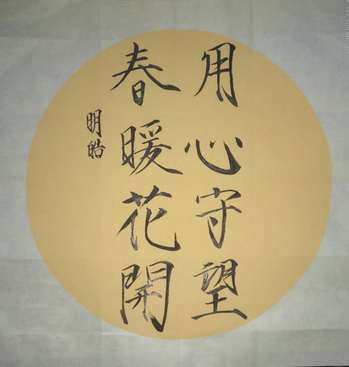 用心守望
春暖花開
明皓